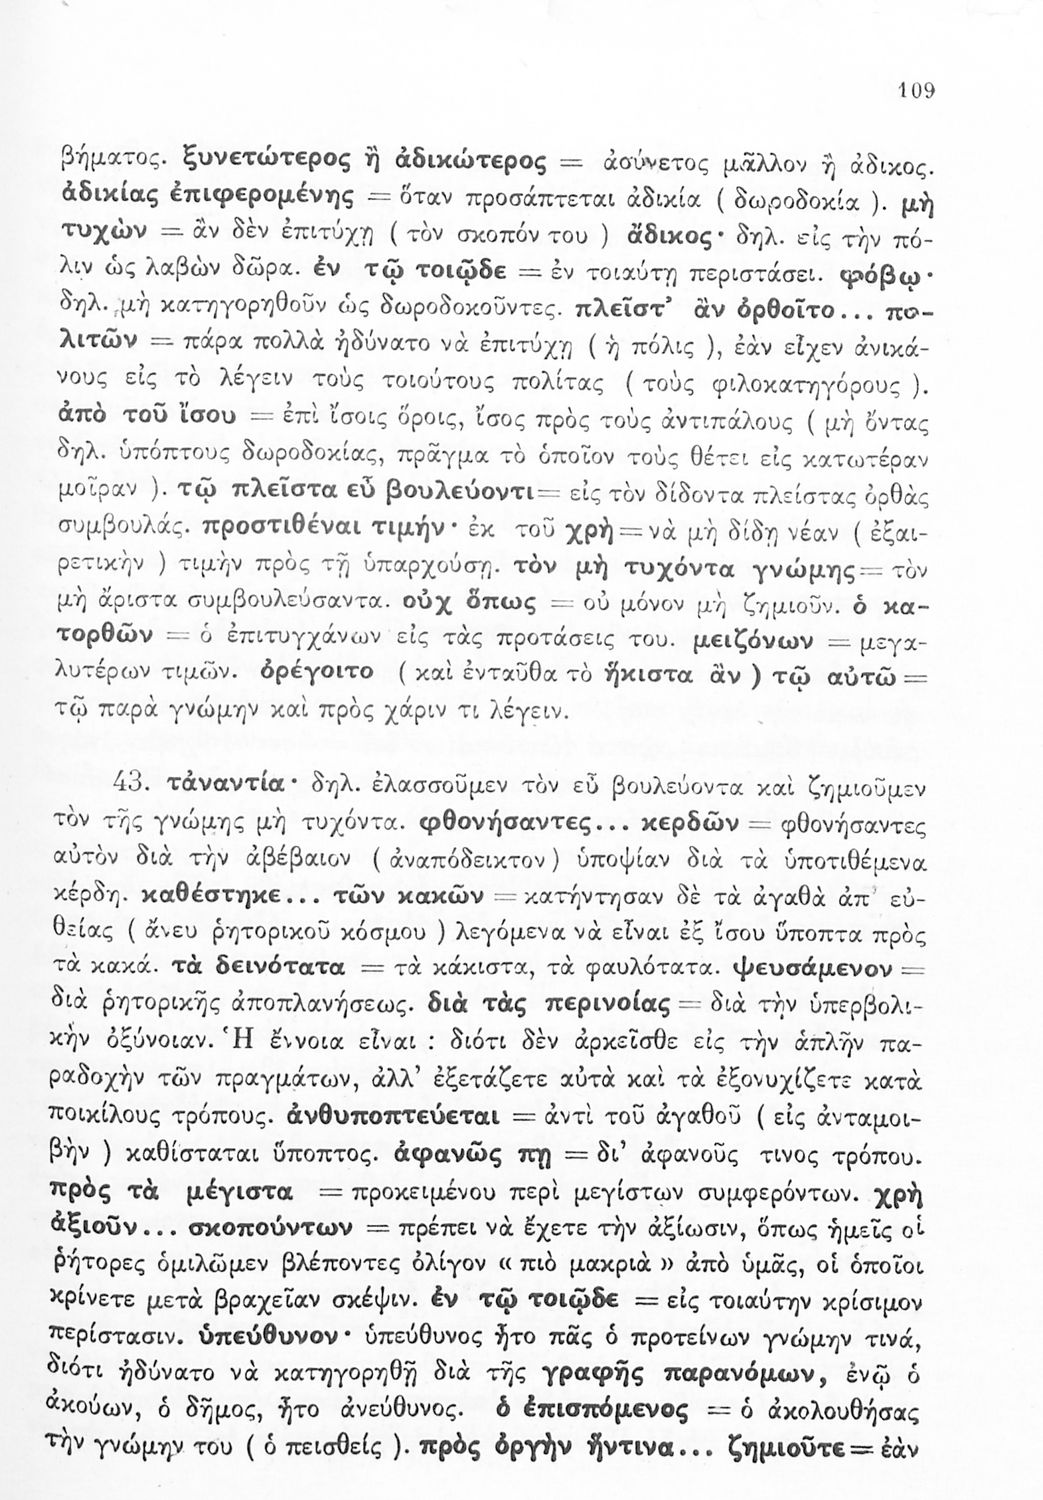 109
βήματος. ξυνετώτερος ἢ ἀδικώτερος = ἀσύνετος μᾶλλον ἢ ἄδικος.
ἀδικίας ἐπιφερομένης = ὅταν προσάπτεται ἀδικία ( δωροδοκία ). μὴ
τυχὼν = ἂν δὲν ἐπιτύχῃ ( τὸν σκοπόν του ) ἄδικος· δηλ. εἰς τὴν πό-
λιν ὡς λαβὼν δῶρα. ἐν τῷ τοιῷδε = ἐν τοιαύτῃ περιστάσει. φόβῳ·
δηλ. μὴ κατηγορηθοῦν ὡς δωροδοκοῦντες. πλεῖστ' ἂν ὀρθοῖτο... πο-
λιτῶν = πάρα πολλὰ ἠδύνατο νὰ ἐπιτύχῃ ( ἡ πόλις ), ἐὰν εἶχεν ἀνικά-
νους εἰς τὸ λέγειν τοὺς τοιούτους πολίτας ( τοὺς φιλοκατηγόρους ).
ἀπὸ τοῦ ἴσου = ἐπὶ ἴσοις ὅροις, ἴσος πρὸς τοὺς ἀντιπάλους ( μὴ ὄντας
δηλ. ὑπόπτους δωροδοκίας, πρᾶγμα τὸ ὁποῖον τοὺς θέτει εἰς κατωτέραν
μοῖραν ). τῷ πλεῖστα εὖ βουλεύοντι = εἰς τὸν δίδοντα πλείστας ὀρθὰς
συμβουλάς. προστιθέναι τιμήν· ἐκ τοῦ χρὴ = νὰ μὴ δίδῃ νέαν ( ἐξαι-
ρετικὴν ) τιμὴν πρὸς τῇ ὑπαρχούσῃ. τὸν μὴ τυχόντα γνώμης = τὸν
μὴ ἄριστα συμβουλεύσαντα. οὐχ ὅπως = οὐ μόνον μὴ ζημιοῦν. ὁ κα-
τορθῶν = ὁ ἐπιτυγχάνων εἰς τὰς προτάσεις του. μειζόνων = μεγα-
λυτέρων τιμῶν. ὀρέγοιτο ( καὶ ἐνταῦθα τὸ ἥκιστα ἂν ) τῷ αὐτῶ =
τῷ παρὰ γνώμην καὶ πρὸς χάριν τι λέγειν.
43. τἀναντία· δηλ. ἐλασσοῦμεν τὸν εὖ βουλεύοντα καὶ ζημιοῦμεν
τὸν τῆς γνώμης μὴ τυχόντα. φθονήσαντες... κερδῶν = φθονήσαντες
αὐτὸν διὰ τὴν ἀβέβαιον ( ἀναπόδεικτον ) ὑποψίαν διὰ τὰ ὑποτιθέμενα
κέρδη. καθέστηκε... τῶν κακῶν = κατήντησαν δὲ τὰ ἀγαθὰ ἀπ' εὐ-
θείας ( ἄνευ ῥητορικοῦ κόσμου ) λεγόμενα νὰ εἶναι ἐξ ἴσου ὕποπτα πρὸς
τὰ κακά. τὰ δεινότατα = τὰ κάκιστα, τὰ φαυλότατα. ψευσάμενον =
διὰ ῥητορικῆς ἀποπλανήσεως. διὰ τὰς περινοίας = διὰ τὴν ὑπερβολι-
κὴν ὀξύνοιαν. Ἡ ἔννοια εἶναι : διότι δὲν ἀρκεῖσθε εἰς τὴν ἁπλῆν πα-
ραδοχὴν τῶν πραγμάτων, ἀλλ' ἐξετάζετε αὐτὰ καὶ τὰ ἐξονυχίζετε κατὰ
ποικίλους τρόπους. ἀνθυποπτεύεται = ἀντὶ τοῦ ἀγαθοῦ ( εἰς ἀνταμοι-
βὴν ) καθίσταται ὕποπτος. ἀφανῶς πῃ = δι' ἀφανοῦς τινος τρόπου.
πρὸς τὰ μέγιστα = προκειμένου περὶ μεγίστων συμφερόντων. χρὴ
ἀξιοῦν... σκοπούντων = πρέπει νὰ ἔχετε τὴν ἀξίωσιν, ὅπως ἡμεῖς οἱ
ῥήτορες ὁμιλῶμεν βλέποντες ὀλίγον « πιὸ μακριὰ » ἀπὸ ὑμᾶς, οἱ ὁποῖοι
κρίνετε μετὰ βραχεῖαν σκέψιν. ἐν τῷ τοιῷδε = εἰς τοιαύτην κρίσιμον
περίστασιν. ὑπεύθυνον· ὑπεύθυνος ἦτο πᾶς ὁ προτείνων γνώμην τινά,
διότι ἠδύνατο νὰ κατηγορηθῇ διὰ τῆς γραφῆς παρανόμων, ἐνῷ ὁ
ἀκούων, ὁ δῆμος, ἦτο ἀνεύθυνος. ὁ ἐπισπόμενος = ὁ ἀκολουθήσας
τὴν γνώμην του ( ὁ πεισθείς ). πρὸς ὀργὴν ἥντινα... ζημιοῦτε = ἐὰν